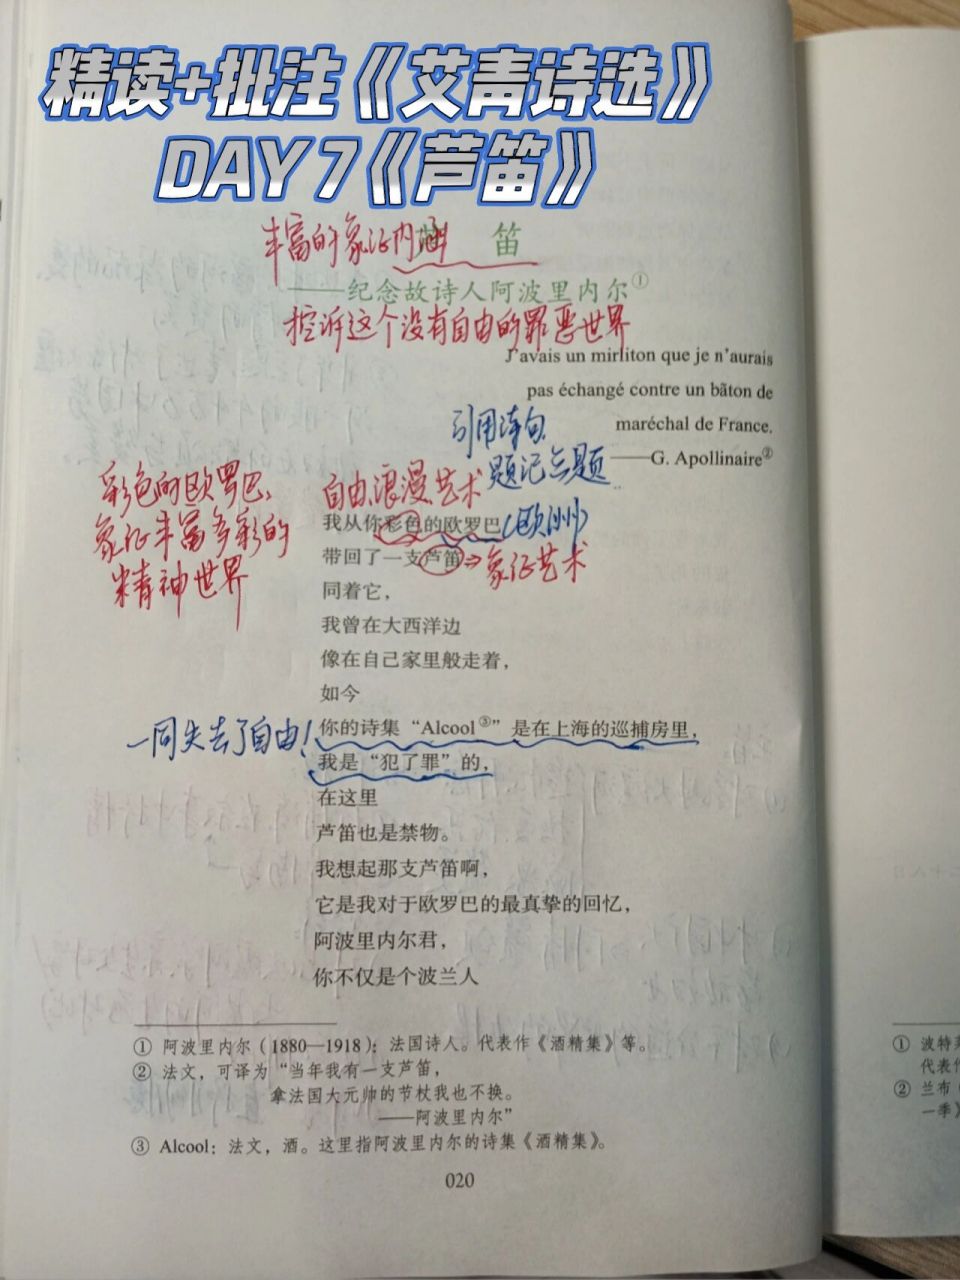 精读+批注《艾青诗选》
DAY 7《芦笛》
丰富的象征内涵
笛
——纪念故诗人阿波里内尔①
控诉这个没有自由的罪恶世界
J'avais un mirliton que je n'aurais
pas échangé contre un bãton de
maréchal de France.
——G. Apollinaire②
引用诗句
题记点题
彩色的欧罗巴、
象征丰富多彩的
精神世界
自由、浪漫、艺术
我从你彩色的欧罗巴(欧洲)
带回了一支芦笛⇒象征艺术
同着它，
我曾在大西洋边
像在自己家里般走着，
如今
你的诗集“Alcool③”是在上海的巡捕房里，
一同失去了自由！
我是“犯了罪”的，
在这里
芦笛也是禁物。
我想起那支芦笛啊，
它是我对于欧罗巴的最真挚的回忆，
阿波里内尔君，
你不仅是个波兰人
① 阿波里内尔（1880—1918）：法国诗人。代表作《酒精集》等。
② 法文，可译为“当年我有一支芦笛，
拿法国大元帅的节杖我也不换。
——阿波里内尔”
③ Alcool：法文，酒。这里指阿波里内尔的诗集《酒精集》。
020
① 波特
代表作
② 兰布
一季》